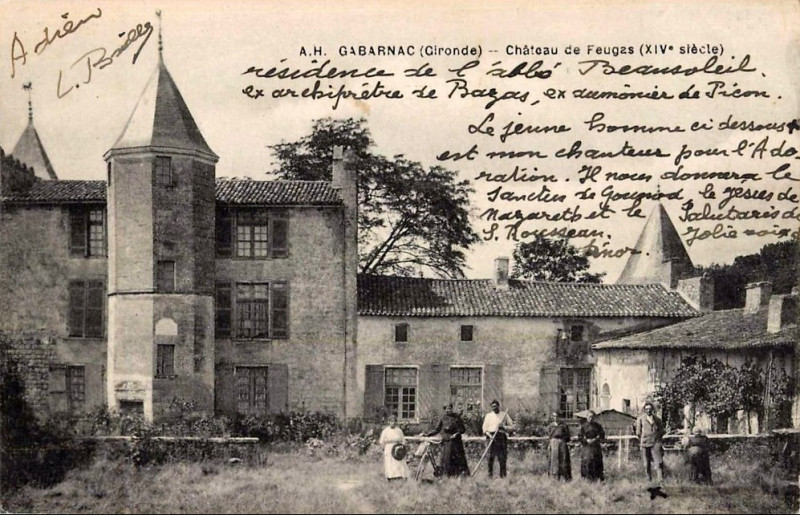 Adrien
L. Bailly
A.H. GABARNAC (Gironde) -- Château de Feugas (XIVe siècle)
résidence de l'abbé Beausoleil.
ex archiprêtre de Bazas, ex aumônier de Picon.
Le jeune homme ci dessous
est mon chanteur pour l'Ado-
ration. Il nous donnera le
Sanctus de Gounod le Jésus de
Nazareth et le Salutaris de
S. Rousseau. Jolie voix de
ténor.